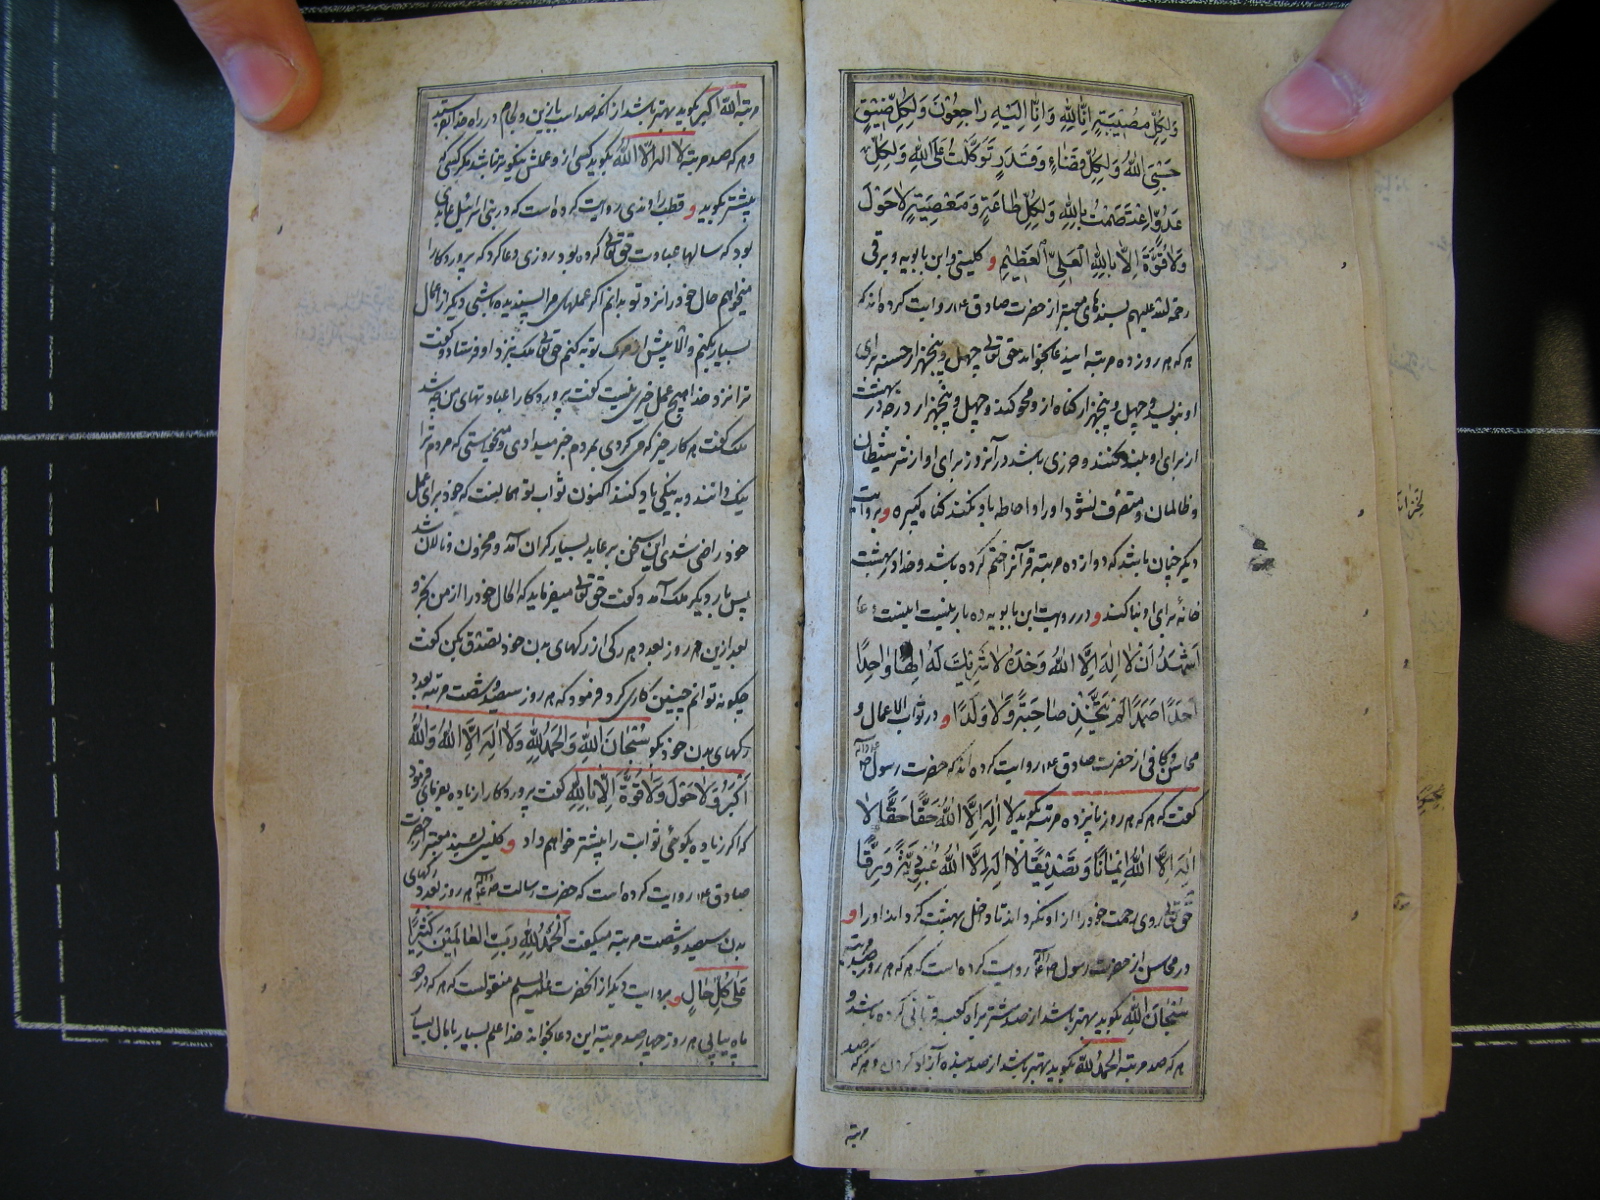 وَلِكُلِّ مُصِيبَةٍ اِنَّا لِلّهِ وَاِنَّا اِلَيْهِ رَاجِعُوْنَ وَلِكُلِّ ضِيْقٍ
حَسْبِىَ اللّهُ وَلِكُلِّ قَضَاءٍ وَقَدَرٍ تَوَكَّلْتُ عَلَى اللّهِ وَلِكُلِّ
عَدُوٍّ اِعْتَصَمْتُ بِاللّهِ وَلِكُلِّ طَاعَةٍ وَمَعْصِيَةٍ لَاحَوْلَ
وَلَاقُوَّةَ اِلَّا بِاللّهِ الْعَلِىِّ الْعَظِيْمِ و كلينى وابن بابويه و برقى
رحمة الله عليهم بسندهاى معتبر از حضرت صادق ع روايت كرده اند كه
هر كه هر روز ده مرتبه اين دعا بخواند حق تعالى چهل و پنجهزار حسنه براى
او بنويسد و چهل و پنجهزار كناه از او محو كند و چهل و پنجهزار درجه در بهشت
از براى او بلند كند و حرزى باشد در آنروز براى او از شر شيطان
و ظالمان و متصرف نشود او را و احاطه باو نكند كناه كبيره و بروايت
ديكر چنان باشد كه دوازده مرتبه قرآنرا ختم كرده باشد و خدا در بهشت
خانهٔ براى او بنا كند و در روايت ابن بابويه ده بار نيست اينست دعا
اَشْهَدُ اَنْ لَا اِلهَ اِلَّا اللّهُ وَحْدَهُ لَا شَرِيْكَ لَهُ اِلهًا وَاحِدًا
اَحَدًا صَمَدًا لَمْ يَتَّخِذْ صَاحِبَةً وَلَا وَلَدًا و در ثواب الاعمال و
محاسن و كافى از حضرت صادق ع روايت كرده اند كه حضرت رسول ص
كفت كه هر كه هر روز پانزده مرتبه بكويد لَا اِلهَ اِلَّا اللّهُ حَقًّا حَقًّا لَا
اِلهَ اِلَّا اللّهُ اِيْمَانًا وَتَصْدِيْقًا لَا اِلهَ اِلَّا اللّهُ عُبُوْدِيَّةً وَرِقًّا
حق تعالى روى رحمت خود را از او نكرداند تا داخل بهشت كرداند او را و
در محاسن از حضرت رسول ص روايت كرده است كه هر كه هر روز صد مرتبه
سُبْحَانَ اللّهِ بكويد بهتر باشد از صد شتر براه كعبه قربانى كرده باشد و
هر كه صد مرتبه الْحَمْدُ لِلّهِ بكويد بهتر باشد از صد بنده آزاد كردن و هر كه صد
مرتبه
مرتبه اللّهُ اَكْبَر بكويد بهتر باشد از آنكه صد اسب با زين و لجام در راه خدا بفرستد
و هر كه صد مرتبه لَا اِلهَ اِلَّا اللّهُ بكويد كسى از او عملش نيكوتر نباشد مكر كسى كه
بيشتر بكويد و قطب راوندى روايت كرده است كه در بنى اسرائيل عابدى
بود كه سالها عبادت حق تعالى كرده بود روزى دعا كرد كه پروردكارا
ميخواهم حال خود را نزد تو بدانم اكر عملهاى مرا پسنديده باشى ديكر از اعمال
بسيار بكنم و الا پيش از مرك توبه كنم حق تعالى ملك بنزد او فرستاد و كفت
ترا نزد خدا هيچ عمل خيرى نيست كفت پروردكارا عبادتهاى من چه شد
ملك كفت هر كار خير كه ميكردى بمردم خبر ميدادى و ميخواستى كه مردم ترا
نيك دانند و به نيكى ياد كنند اكنون ثواب تو همانست كه خود براى عمل
خود راضى شدى اين سخن بر عابد بسيار كران آمد و محزون و نالان شد
پس بار ديكر ملك آمد و كفت حق تعالى ميفرمايد كه الحال خود را از من بخر و
بعد ازين هر روز بعدد هر ركى از ركهاى بدن خود تصدق بكن كفت
چكونه توانم چنين كارى كرد فرمود كه هر روز سيصد و شصت مرتبه بعدد
ركهاى بدن خود بكو سُبْحَانَ اللّهِ وَالْحَمْدُ لِلّهِ وَلَا اِلهَ اِلَّا اللّهُ وَاللّهُ
اَكْبَرُ وَلَا حَوْلَ وَلَا قُوَّةَ اِلَّا بِاللّهِ كفت پروردكارا زياده بفرماى فرمود
كه اكر زياده بكوئى ثوابت را بيشتر خواهم داد و كلينى بسند معتبر از حضرت
صادق ع روايت كرده است كه حضرت رسالت ص هر روز بعدد ركهاى
بدن سيصد و شصت مرتبه ميكفت الْحَمْدُ لِلّهِ رَبِّ الْعَالَمِيْنَ كَثِيْرًا
عَلَى كُلِّ حَالٍ و بروايت ديكر از آنحضرت عليه السلام منقولست كه هر كه در دو
ماه پياپى هر روز چهار صد مرتبه اين دعا بخواند خدا علم بسيار يا مال بسيار